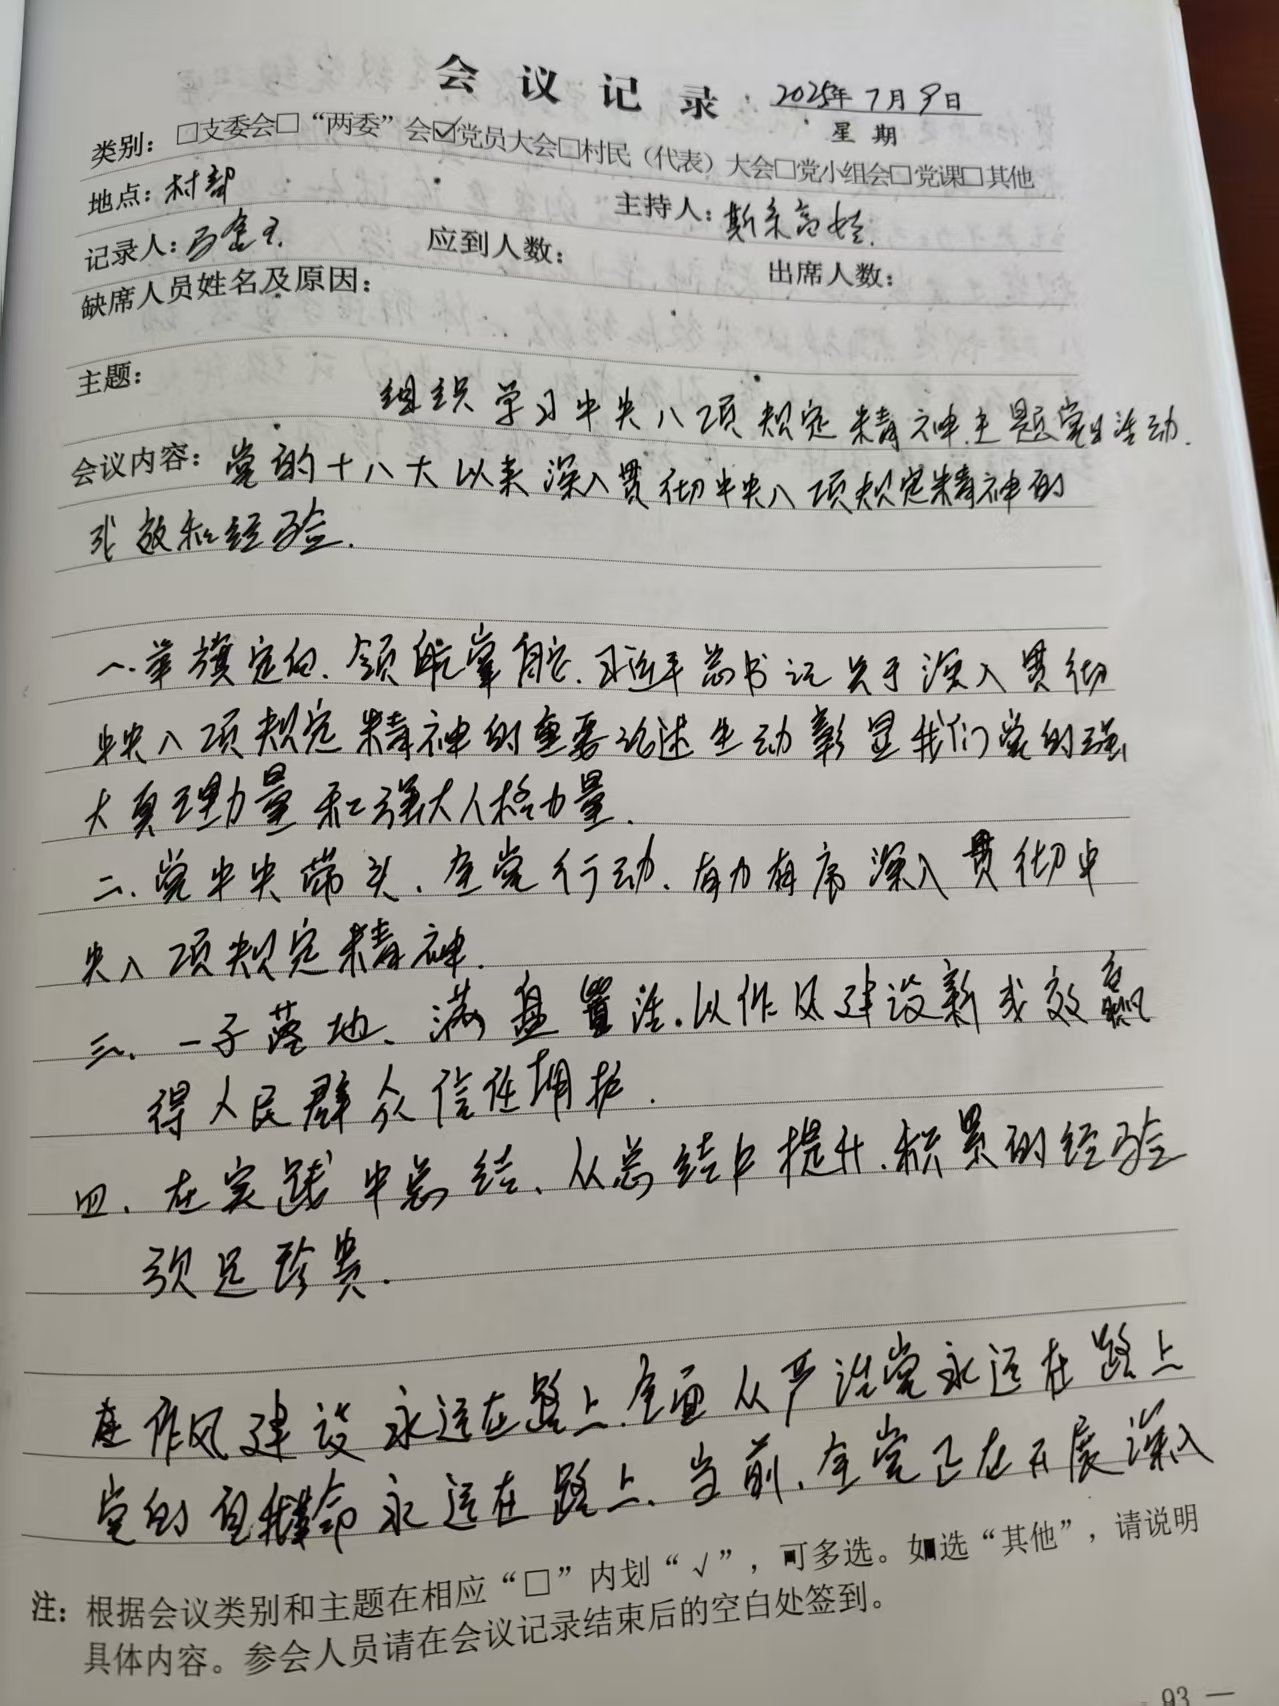 会议记录
2025年7月9日
星期
类别：□支委会□“两委”会☑党员大会□村民（代表）大会□党小组会□党课□其他
地点：村部
主持人：斯庆高娃
记录人：
应到人数：
出席人数：
缺席人员姓名及原因：
主题：
组织学习中央八项规定精神主题党日活动.
会议内容：党的十八大以来深入贯彻中央八项规定精神的
成效和经验.
一.举旗定向、领航掌舵.习近平总书记关于深入贯彻
中央八项规定精神的重要论述生动彰显我们党的强
大真理力量和强大人格力量.
二.党中央带头.全党行动.有力有序深入贯彻中
央八项规定精神.
三、一子落地、满盘皆活.以作风建设新成效赢
得人民群众信任拥护.
四、在实践中总结、从总结中提升.积累的经验
弥足珍贵.
作风建设永远在路上.全面从严治党永远在路上
党的自我革命永远在路上.当前.全党正在开展深入
注：根据会议类别和主题在相应“□”内划“√”，可多选。如选“其他”，请说明
具体内容。参会人员请在会议记录结束后的空白处签到。
93 —